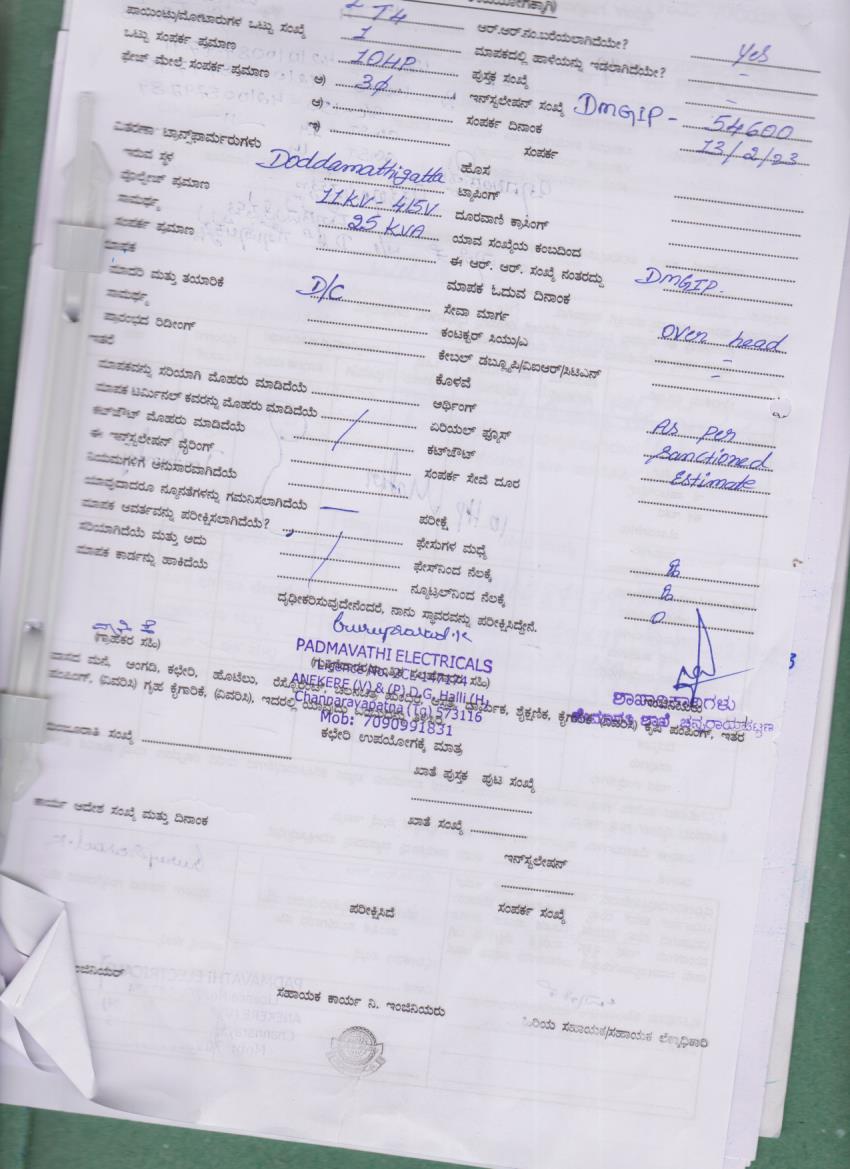 LT4
ಪಾಯಿಂಟು/ಮೋಟಾರುಗಳ ಒಟ್ಟು ಸಂಖ್ಯೆ 1 ಆರ್.ಆರ್.ನಂ.ಬರೆಯಲಾಗಿದೆಯೇ? Yes
ಒಟ್ಟು ಸಂಪರ್ಕ ಪ್ರಮಾಣ 10HP ಮಾಪಕದಲ್ಲಿ ಹಾಳೆಯನ್ನು ಇಡಲಾಗಿದೆಯೇ? -
ಫೇಜ್ ಮೇಲೆ ಸಂಪರ್ಕ ಪ್ರಮಾಣ ಅ) 3ø ಪುಸ್ತಕ ಸಂಖ್ಯೆ -
ಆ) ಇನ್‌ಸ್ಟಲೇಷನ್ ಸಂಖ್ಯೆ DMGIP - 54600
ಇ) ಸಂಪರ್ಕ ದಿನಾಂಕ 13/2/23
ವಿತರಣಾ ಟ್ರಾನ್ಸ್‌ಫಾರ್ಮರುಗಳು ಸಂಪರ್ಕ
ಇರುವ ಸ್ಥಳ Doddamathigatta ಹೊಸ
ವೊಲ್ಟೇಜ್ ಪ್ರಮಾಣ 11KV - 415V ಟ್ಯಾಪಿಂಗ್
ಸಾಮರ್ಥ್ಯ 25 KVA ದೂರವಾಣಿ ಕ್ರಾಸಿಂಗ್
ಸಂಪರ್ಕ ಪ್ರಮಾಣ ಯಾವ ಸಂಖ್ಯೆಯ ಕಂಬದಿಂದ
ಮಾಪಕ ಈ ಆರ್. ಆರ್. ಸಂಖ್ಯೆ ನಂತರದ್ದು DMGIP-
ಮಾದರಿ ಮತ್ತು ತಯಾರಿಕೆ D/C ಮಾಪಕ ಓದುವ ದಿನಾಂಕ
ಸಾಮರ್ಥ್ಯ ಸೇವಾ ಮಾರ್ಗ Over head
ಪ್ರಾರಂಭದ ರಿಡೀಂಗ್ ಕಂಟಕ್ಟರ್ ಸಿಯು/ಎ -
ಇತರೆ ಕೇಬಲ್ ಡಬ್ಲ್ಯೂಪಿ/ವಿಐಆರ್/ಸಿಟಿಎನ್ -
ಮಾಪಕವನ್ನು ಸರಿಯಾಗಿ ಮೊಹರು ಮಾಡಿದೆಯೆ ಕೊಳವೆ
ಮಾಪಕ ಟರ್ಮಿನಲ್ ಕವರನ್ನು ಮೊಹರು ಮಾಡಿದೆಯೆ ಅರ್ಥಿಂಗ್ As per
ಕಟ್‌ಔಟ್ ಮೊಹರು ಮಾಡಿದೆಯೆ ಏರಿಯಲ್ ಫ್ಯೂಸ್ Sanctioned
ಈ ಇನ್‌ಸ್ಟಲೇಷನ್ ವೈರಿಂಗ್ ಕಟ್‌ಔಟ್ Estimate
ನಿಯಮಗಳಿಗೆ ಅನುಸಾರವಾಗಿದೆಯೆ ಸಂಪರ್ಕ ಸೇವೆ ದೂರ
ಯಾವುದಾದರೂ ನ್ಯೂನತೆಗಳನ್ನು ಗಮನಿಸಲಾಗಿದೆಯೆ —
ಮಾಪಕ ಆವರ್ತವನ್ನು ಪರೀಕ್ಷಿಸಲಾಗಿದೆಯೆ? ಪರೀಕ್ಷೆ
ಸರಿಯಾಗಿದೆಯೆ ಮತ್ತು ಅದು ಫೇಸುಗಳ ಮಧ್ಯೆ
ಮಾಪಕ ಕಾರ್ಡನ್ನು ಹಾಕಿದೆಯೆ ಫೇಸ್‌ನಿಂದ ನೆಲಕ್ಕೆ
ನ್ಯೂಟ್ರಲ್‌ನಿಂದ ನೆಲಕ್ಕೆ 0
ದೃಢೀಕರಿಸುವುದೇನೆಂದರೆ, ನಾನು ಸ್ಥಾವರವನ್ನು ಪರೀಕ್ಷಿಸಿದ್ದೇನೆ.
Guruprasad.K
(ಗ್ರಾಹಕರ ಸಹಿ) PADMAVATHI ELECTRICALS
ANEKERE (V) & (P) D.G. Halli (H)
Channarayapatna (Tq) 573116
Mob: 7090991831
ಶಾಖಾಧಿಕಾರಿಗಳು
ಚನ್ನರಾಯಪಟ್ಟಣ
ವಾಸದ ಮನೆ, ಅಂಗಡಿ, ಕಛೇರಿ, ಹೊಟೆಲು,
ಪಂಪಿಂಗ್, (ವಿವರಿಸಿ) ಗೃಹ ಕೈಗಾರಿಕೆ, (ವಿವರಿಸಿ), ಇದರಲ್ಲಿ
ಕಛೇರಿ ಉಪಯೋಗಕ್ಕೆ ಮಾತ್ರ
ಖಾತೆ ಪುಸ್ತಕ ಪುಟ ಸಂಖ್ಯೆ
ಕಾರ್ಯ ಆದೇಶ ಸಂಖ್ಯೆ ಮತ್ತು ದಿನಾಂಕ ಖಾತೆ ಸಂಖ್ಯೆ
ಇನ್‌ಸ್ಟಲೇಷನ್
ಪರೀಕ್ಷಿಸಿದೆ ಸಂಪರ್ಕ ಸಂಖ್ಯೆ
ಇಂಜಿನಿಯರ್ ಸಹಾಯಕ ಕಾರ್ಯ ನಿ. ಇಂಜಿನಿಯರು ಹಿರಿಯ ಸಹಾಯಕ/ಸಹಾಯಕ ಲೆಕ್ಕಾಧಿಕಾರಿ